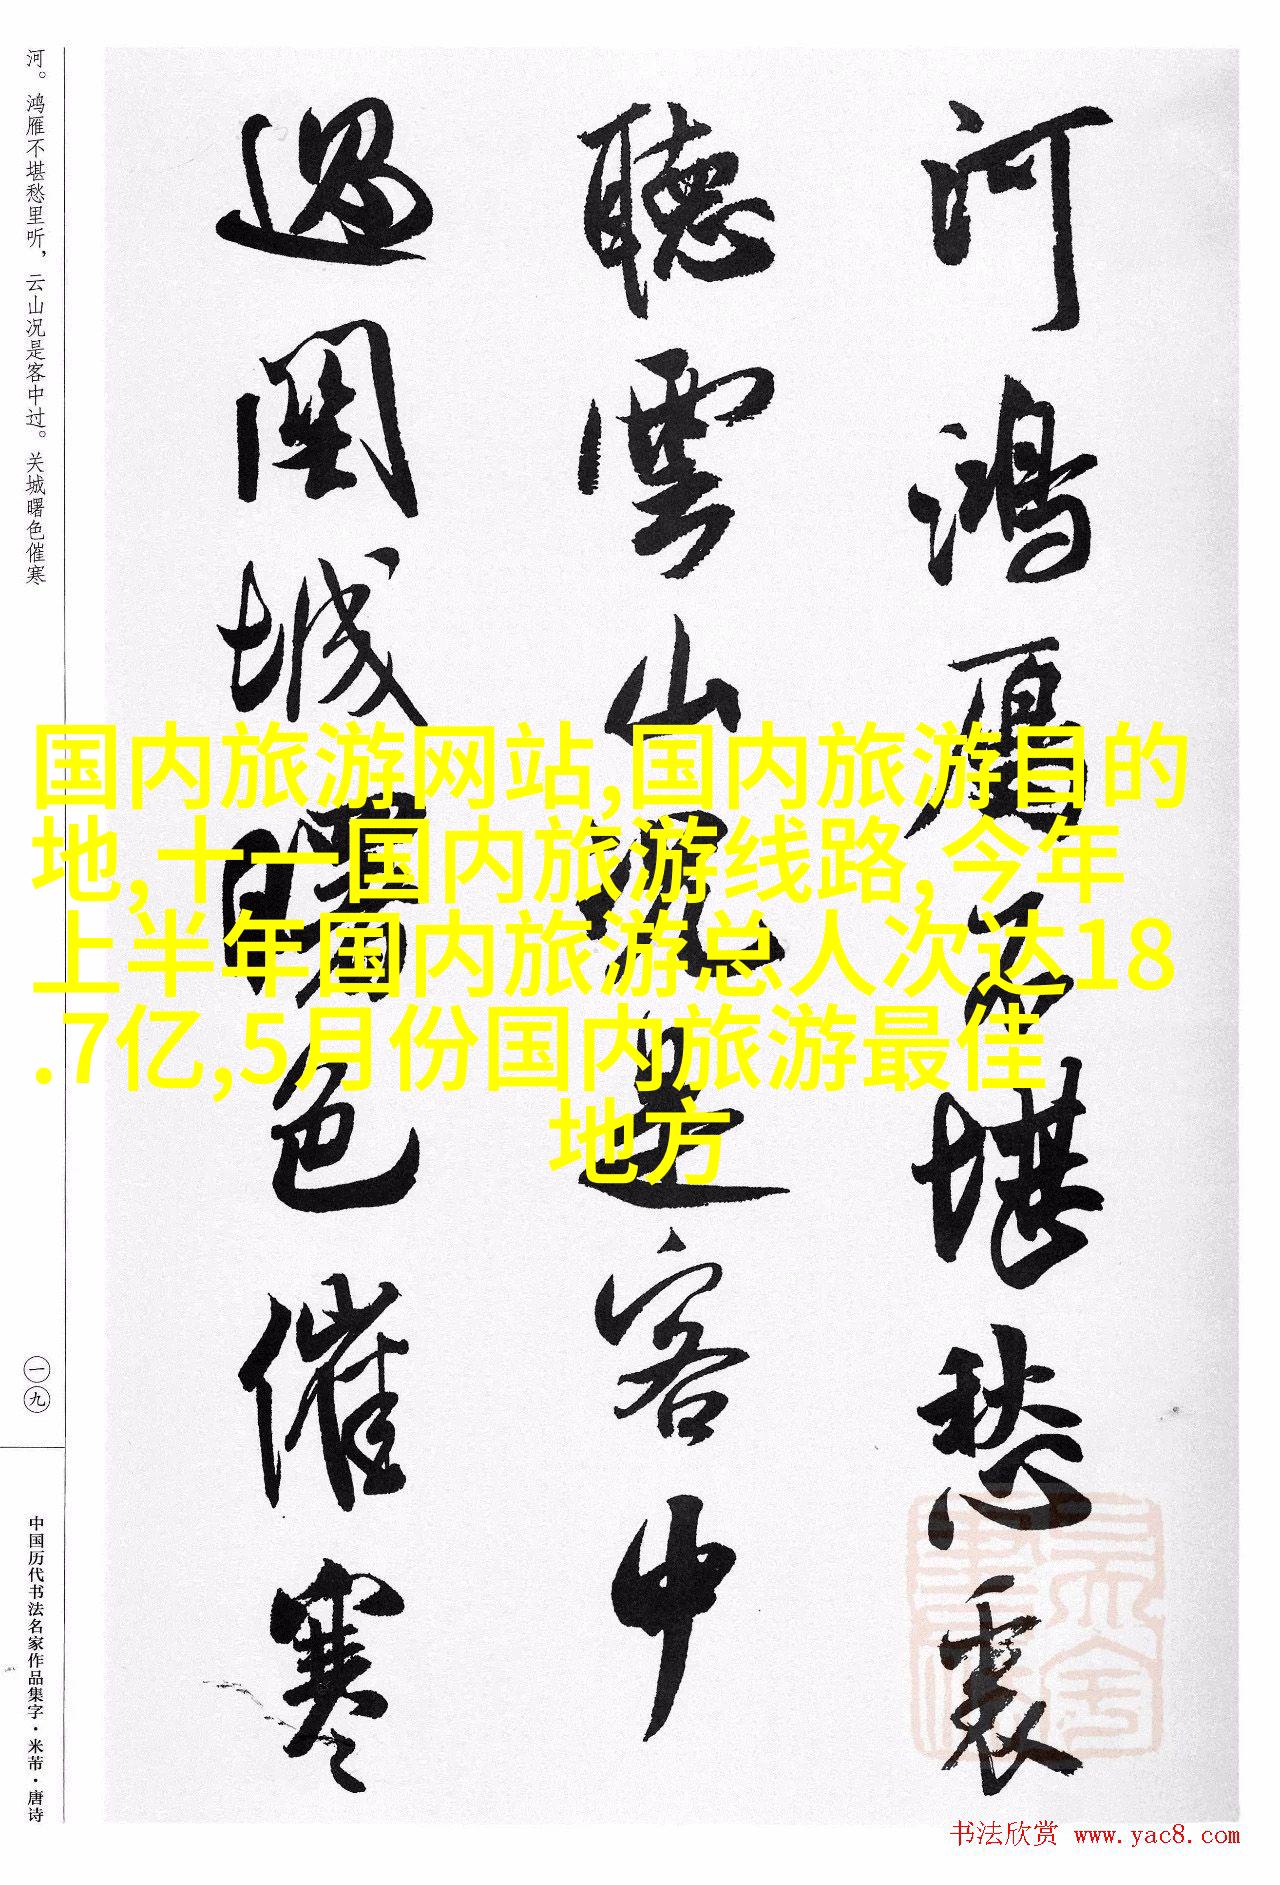 河鸿雁不堪愁裏
聽雲山况是客中
過関城曙色催寒
河。鸿雁不堪愁里听，云山况是客中过。关城曙色催寒
一九
中国历代书法名家作品集字·米芾·唐诗
国内旅游网站,国内旅游目的
地,十一国内旅游线路,今年
上半年国内旅游总人次达18
.7亿,5月份国内旅游最佳
地方
书法欣赏 www.yac8.com